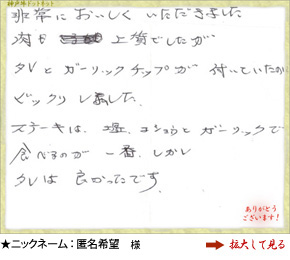 神戸牛ドットネット
非常においしくいただきました
肉も 上質でしたが
タレとガーリックチップが 付いていたのが
ビックリしました。
ステーキは、塩、コショウとガーリックで
食べるのが 一番、しかし
タレは 良かったです。
ありがとう
ございます!
★ニックネーム：匿名希望 様
拡大して見る